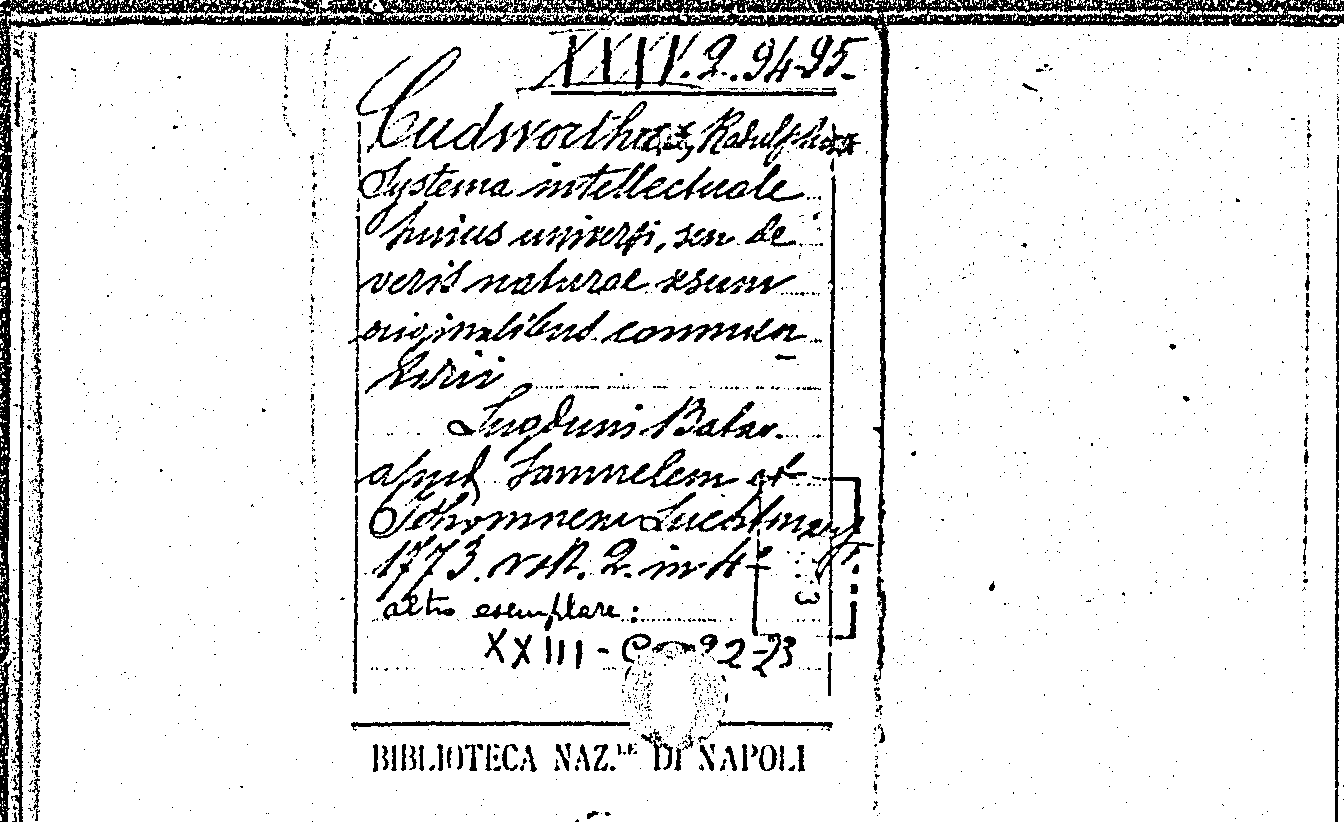 XXXV.2.94-95.
Cudworthus, Radulphus
Systema intellectuale
huius universi, seu de
veris naturae rerum
originalibus commen
tarii
Lugduni Batav.
apud Samuelem et
Iohannem Luchtmans
1773. voll. 2. in 4º
altro esemplare:
XXIII-C-22-23
BIBLIOTECA NAZ.LE DI NAPOLI